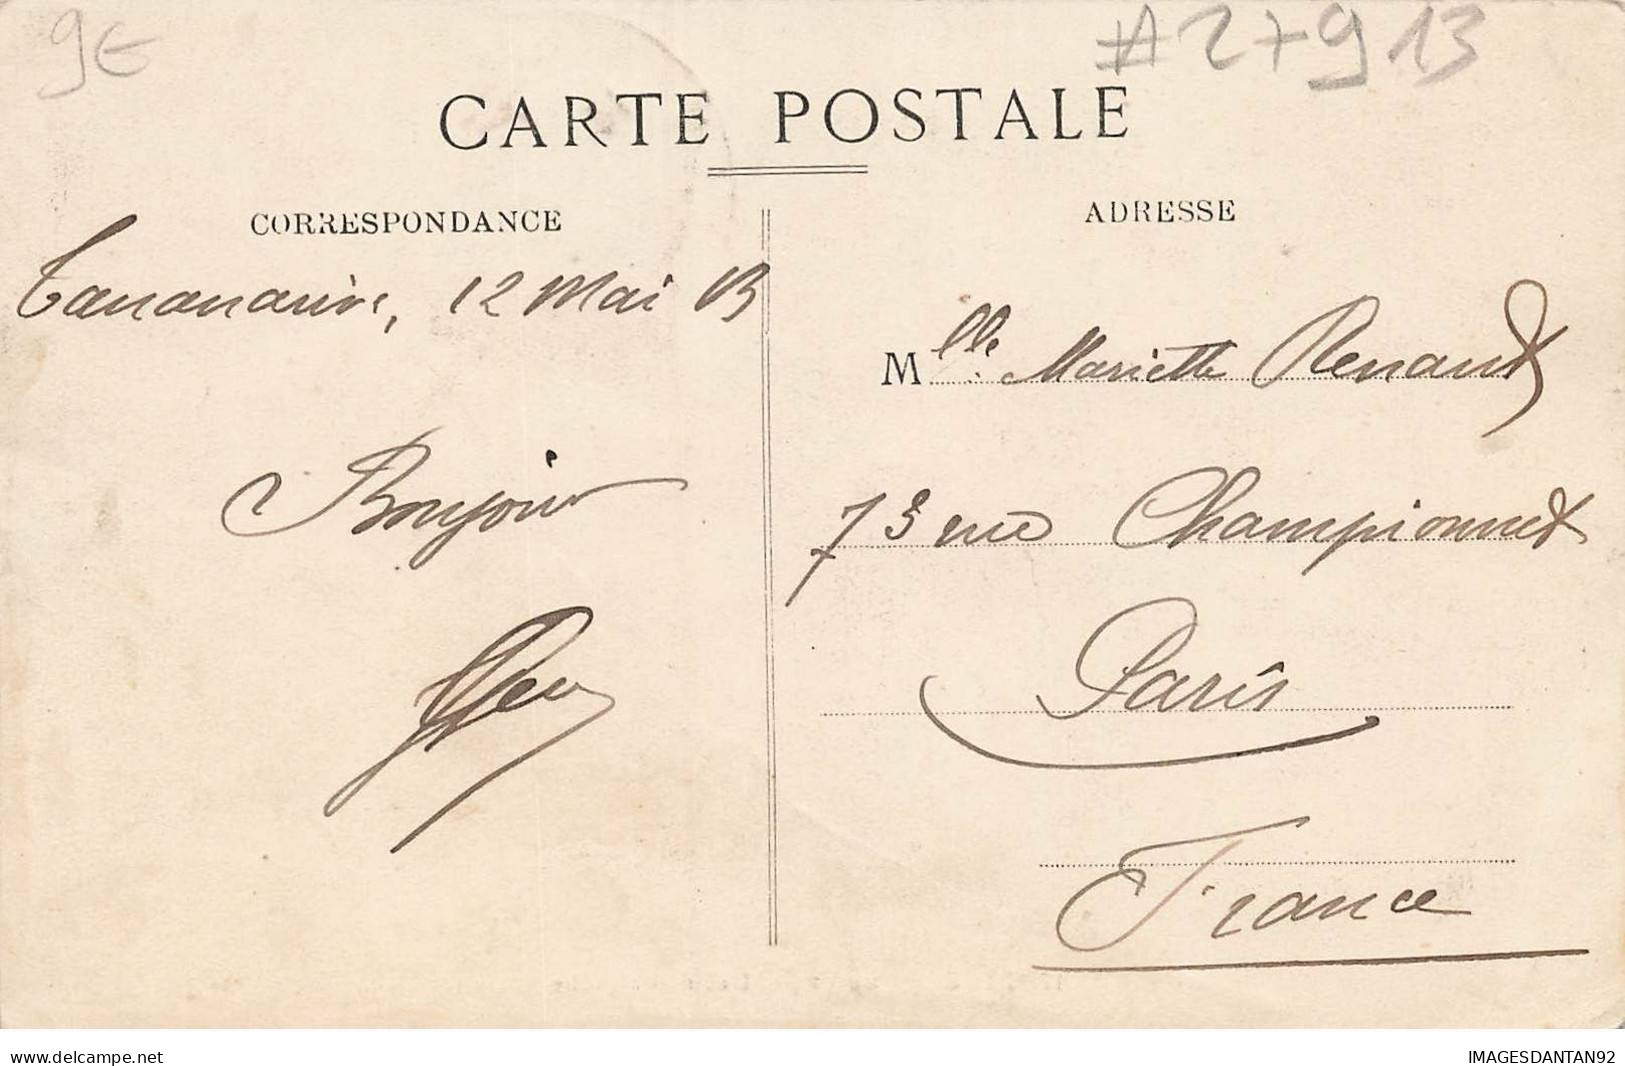 9€
#27913
CARTE POSTALE
CORRESPONDANCE
ADRESSE
Tananarive, 12 Mai 13
Mlle Mariette Renault
73 rue Championnet
Bonjour
Paris
France
delcampe.net
IMAGESDANTAN92